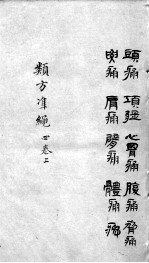 頭痛 項強 心胃痛 腹痛 脅痛
腰痛 肩痛 臂痛 體痛 痹
類方准繩 四卷上